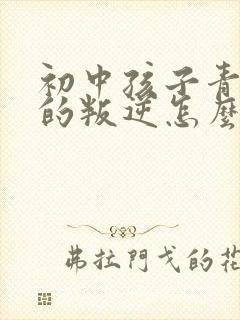 初中孩子青
的叛逆怎麼
弗拉門戈的花